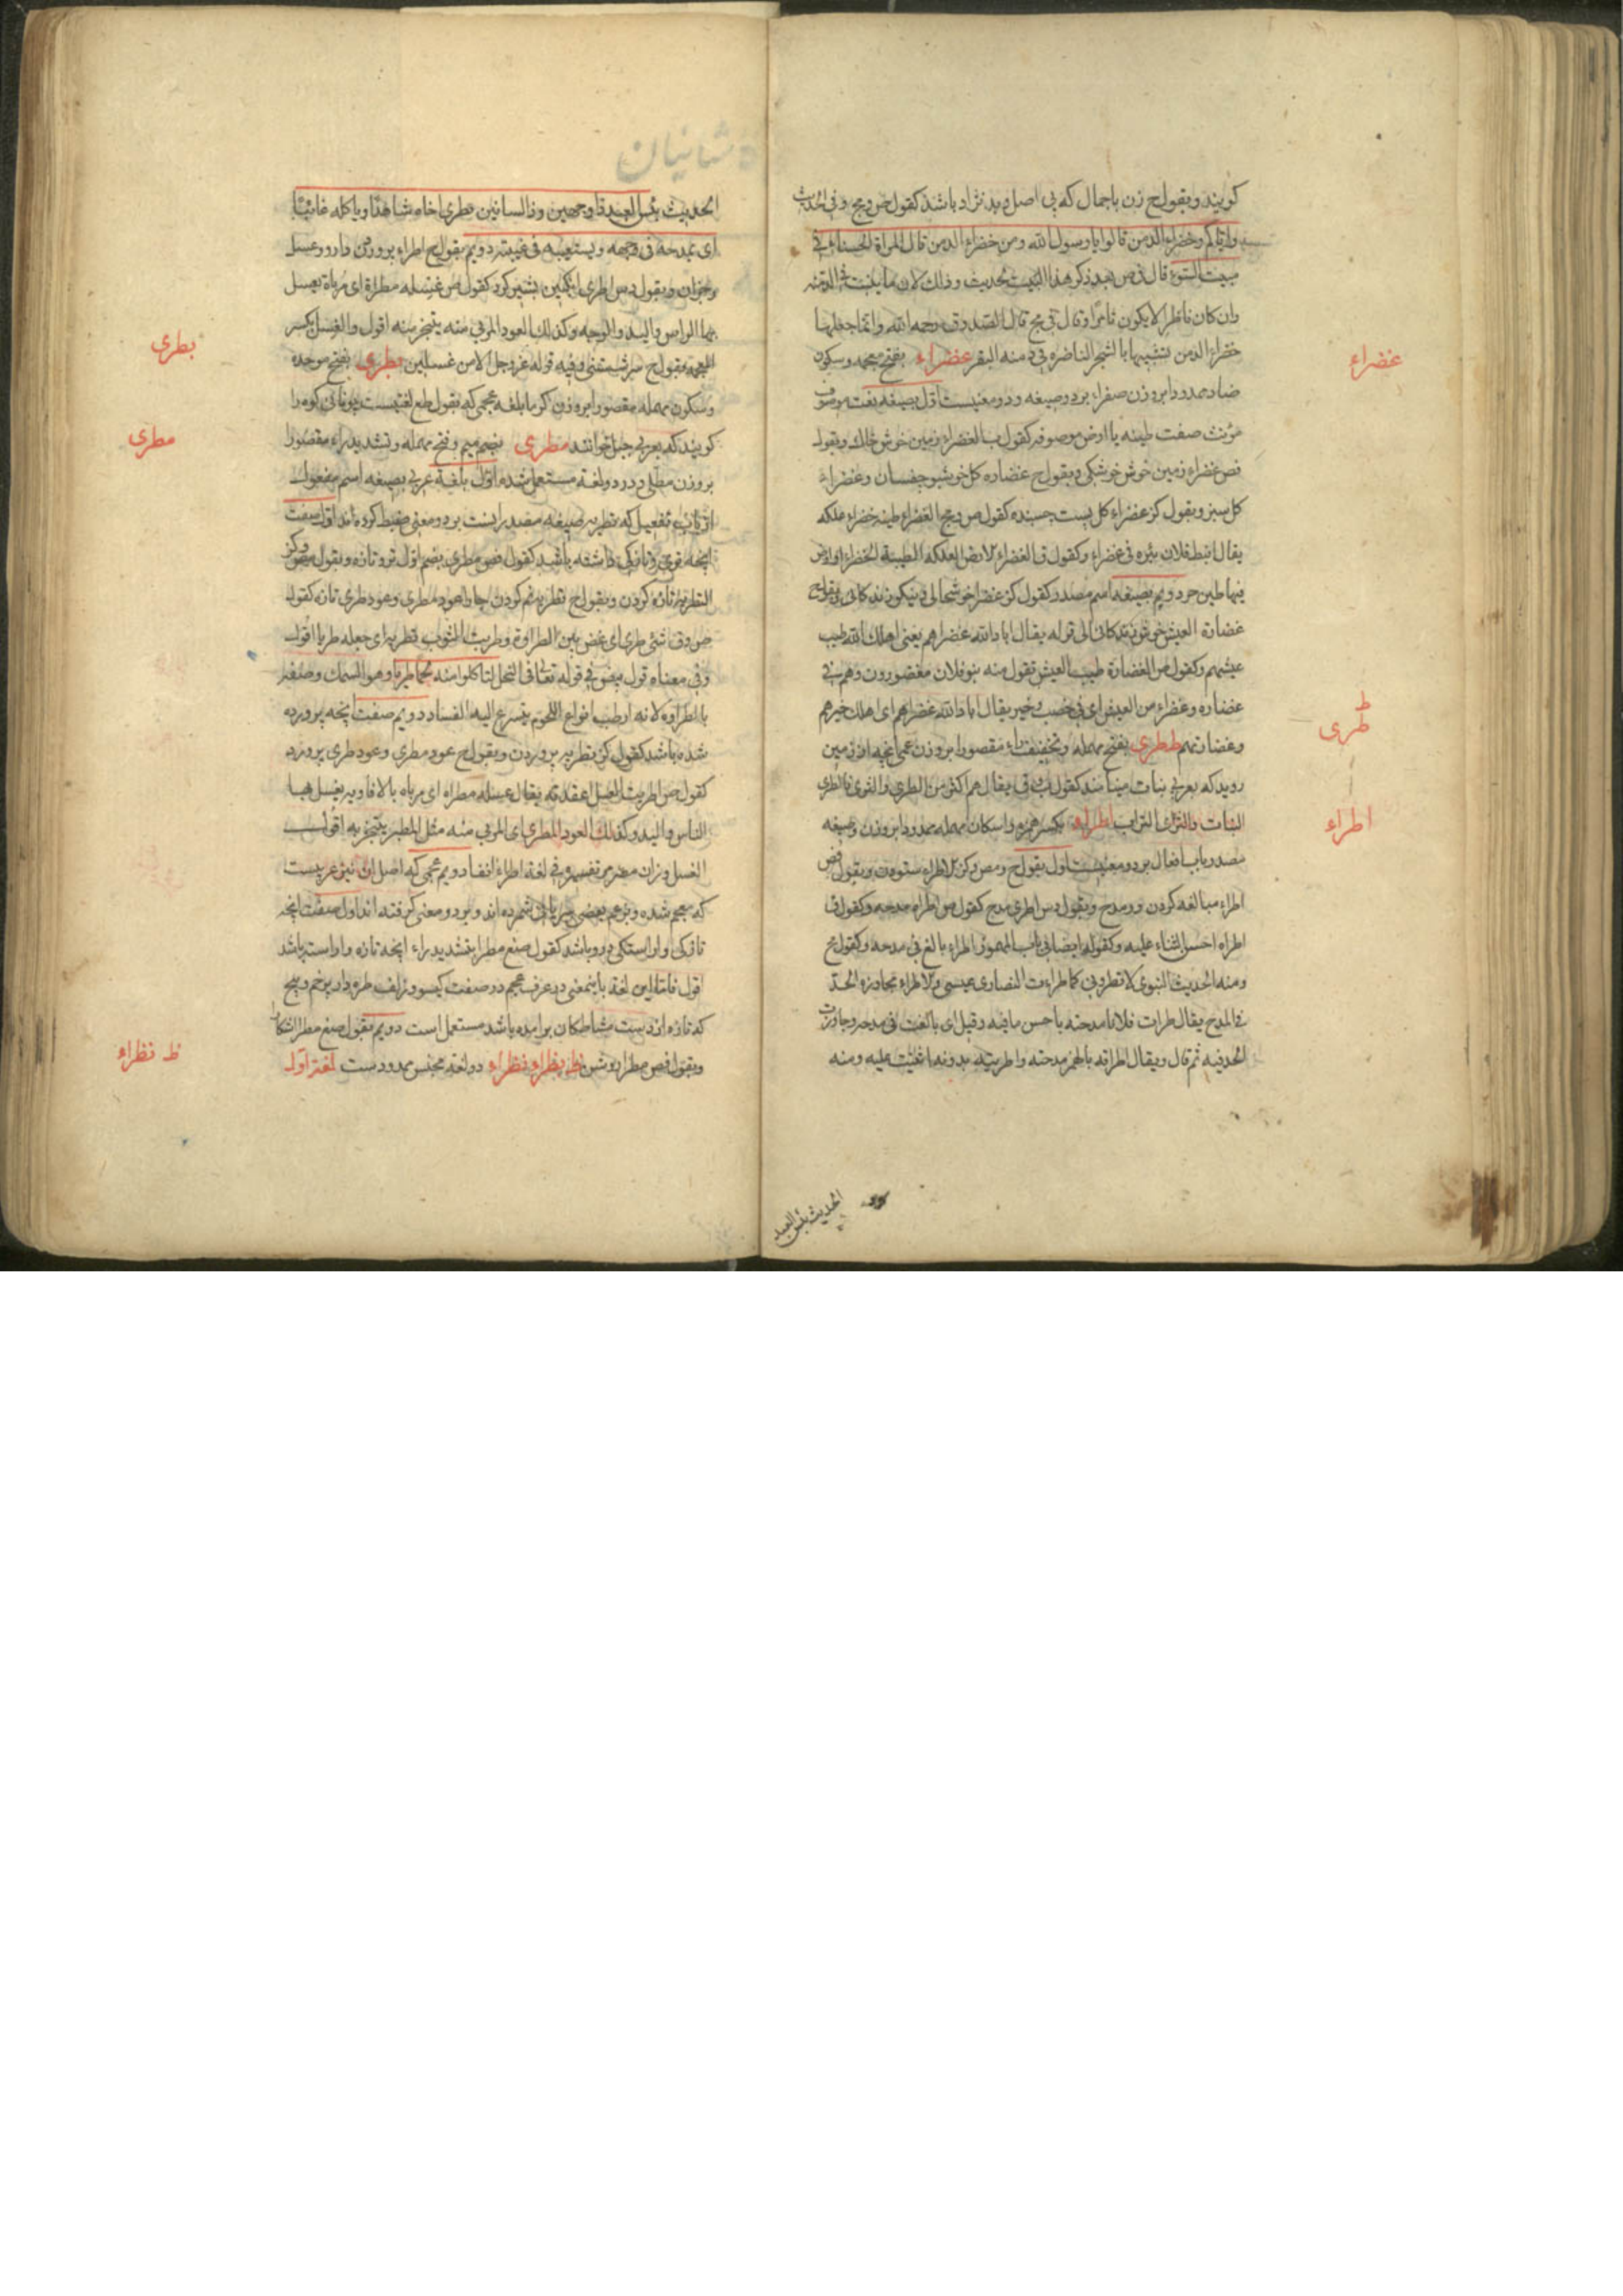 کویند و بقول ح زن باجمال که بی اصل و بد نژاد باشد کقول ص و مج وفی الحدیث
وایاکم وخضراء الدمن قالوا یا رسول الله ومن خضراء الدمن قال المراة الحسناء فی
منبت السوء قال فی ص بعد ذکر هذا الحدیث وذلک لان ما ینبت فی الدمنه
وان کان ناظرا لا یکون ثامرا وقال فی مج قال الصدوق رحمه الله وانما جعلها
خضراء الدمن تشبیها بالشجر الناضره فی دمنه البقر غضراء بفتح معجمه وسکون
ضاد ممدودا بروزن صفراء بر دو صیغه و دو معنیست اول بصیغه نعت موصوف
مؤنث صفت طینه یا ارض موصوفه کقول ب الغضراء زمین خوش خاک وبقول
فص غضراء زمین خوش خوشکی وبقول ح غضاره کل خوشبو چفسان وغضراء
کل سبز وبقول کز غضراء کل پست چسبنده کقول ص و مج الغضراء طینه خضراء علکه
یقال انبط فلان بئره فی غضراء وکقول ق الغضراء الارض العلکه الطیبة الخضراء او ارض
فیها طین حر دویم بصیغه اسم مصدر کقول کز غضرا خوشحالی و نیکوزندکانی وبقول ح
غضارة العیش خوش زندکانی الی قوله یقال اباد الله غضراهم یعنی اهلک الله طیب
عیشهم وکقول ص الغضارة طیب العیش تقول منه بنو فلان مغضورون وهم فی
غضاره وغضراء من العیش ای فی خصب وخیر یقال اباد الله غضراهم ای اهلک خیرهم
وغضارتهم ط طری بفتح مهمله وتخفیف راء مقصورا بروزن عمی انچه از زمین
روید که بعربی نبات مینامند کقول ب و ق یقال هم اکثر من الطری والثری فالطری
النبات والثری التراب اطراء بکسر همزه واسکان مهمله ممدودا بروزن وصیغه
مصدر باب افعال بر دو معنیست اول بقول ح و مص و کز الاطراء ستودن وبقول فص
اطراء مبالغه کردن در مدح وبقول دس اطری مدح کقول ص اطراه مدحه وکقول ق
اطراه احسن الثناء علیه وکقوله ایضا فی باب المهموز اطراء بالغ فی مدحه وکقول مج
ومنه الحدیث النبوی لا تطرونی کما اطراءت النصاری عیسی والاطراء مجاوزة الحد
فی المدح یقال اطرات فلانا مدحته باحسن ما فیه وقیل ای بالغت فی مدحه وجاوزت
الحد فیه ثم قال ویقال اطراته بالهمز مدحته واطریته بدونه اثنیت علیه ومنه
الحدیث بئس العبد
غضراء
ط
طری
اطراء
الحدیث بئس العبد ذا وجهین وذا لسانین یطری اخاه شاهدا ویاکله غائبا
ای یمدحه فی وجهه ویستعیبه فی غیبته دویم بقول ح اطراء پروردن دارو و عسل
وجز ان وبقول دس اطری انکبین بشیر کرد کقول ص غسله مطراة ای مرباة یغسل
بها الراس والید والوجه وکذلک العود المربی منه یتبخر منه اقول والغسل بکسر
بطری بفتح موحده
وسکون مهمله مقصورا بروزن کرما بلغه عجمی که بقول طع لغتیست یونانی کوه را
کویند که بعربی جبل خوانند مطری بضم میم وفتح مهمله وتشدید راء مقصورا
بروزن مطلی و در دو لغة مستعمل شده اول بلغة عربی بصیغه اسم مفعول
از باب تفعیل که تطریه صیغه مصدر انست بر دو معنی ضبط کرده اند اول صفت
انچه تری وتازکی داشته باشد کقول فص مطری بضم اول تر و تازه وبقول مص و کز
التطریة تازه کردن وبقول ح تطریه نم کردن جا واعود مطری وعود طری تازه کقول
ص و ق شئ طری ای غض بین الطراوة وطریت الثوب تطریة ای جعله طریا اقول
وفی معناه قول بیض فی قوله تعالی فی النحل لتاکلوا منه لحما طریا وهو السمک وصفه
بالطراوه لانه ارطب انواع اللحوم یتسرع الیه الفساد دویم صفت انچه پرورده
شده باشد کقول کز تطریه پروردن وبقول ح عود مطری وعود طری پرورده
کقول ص اطریت العسل اعقدته یقال غسله مطراه ای مرباه بالافاویه یغسل بها
الراس والید وکذلک العود المطری ای المربی منه مثل المطیر یتبخر به اقول
الغسل وزان مضی تفسیره فی لغة اطراء انفا دویم عجمی که اصل ان نیز عربیست
که معجم شده وبزعم بعضی شمرده اند وبر دو معنی کرفته اند اول صفت انچه
تازکی واراستکی درو باشد کقول صغ مطرا بتشدید راء انچه تازه واراسته باشد
اقول فاما این لغة باینمعنی در عرف عجم در صفت کیسو و زلف طره دار پر خم و پیچ
که تازه از دست مشاطکان برامده باشد مستعمل است دویم بقول صغ مطرا اشکار
وبقول فص مطرا روشن ظ بظراء نظراء دو لغة مجنس ممدودست لغة اول
بطری
مطری
ظ نظراء